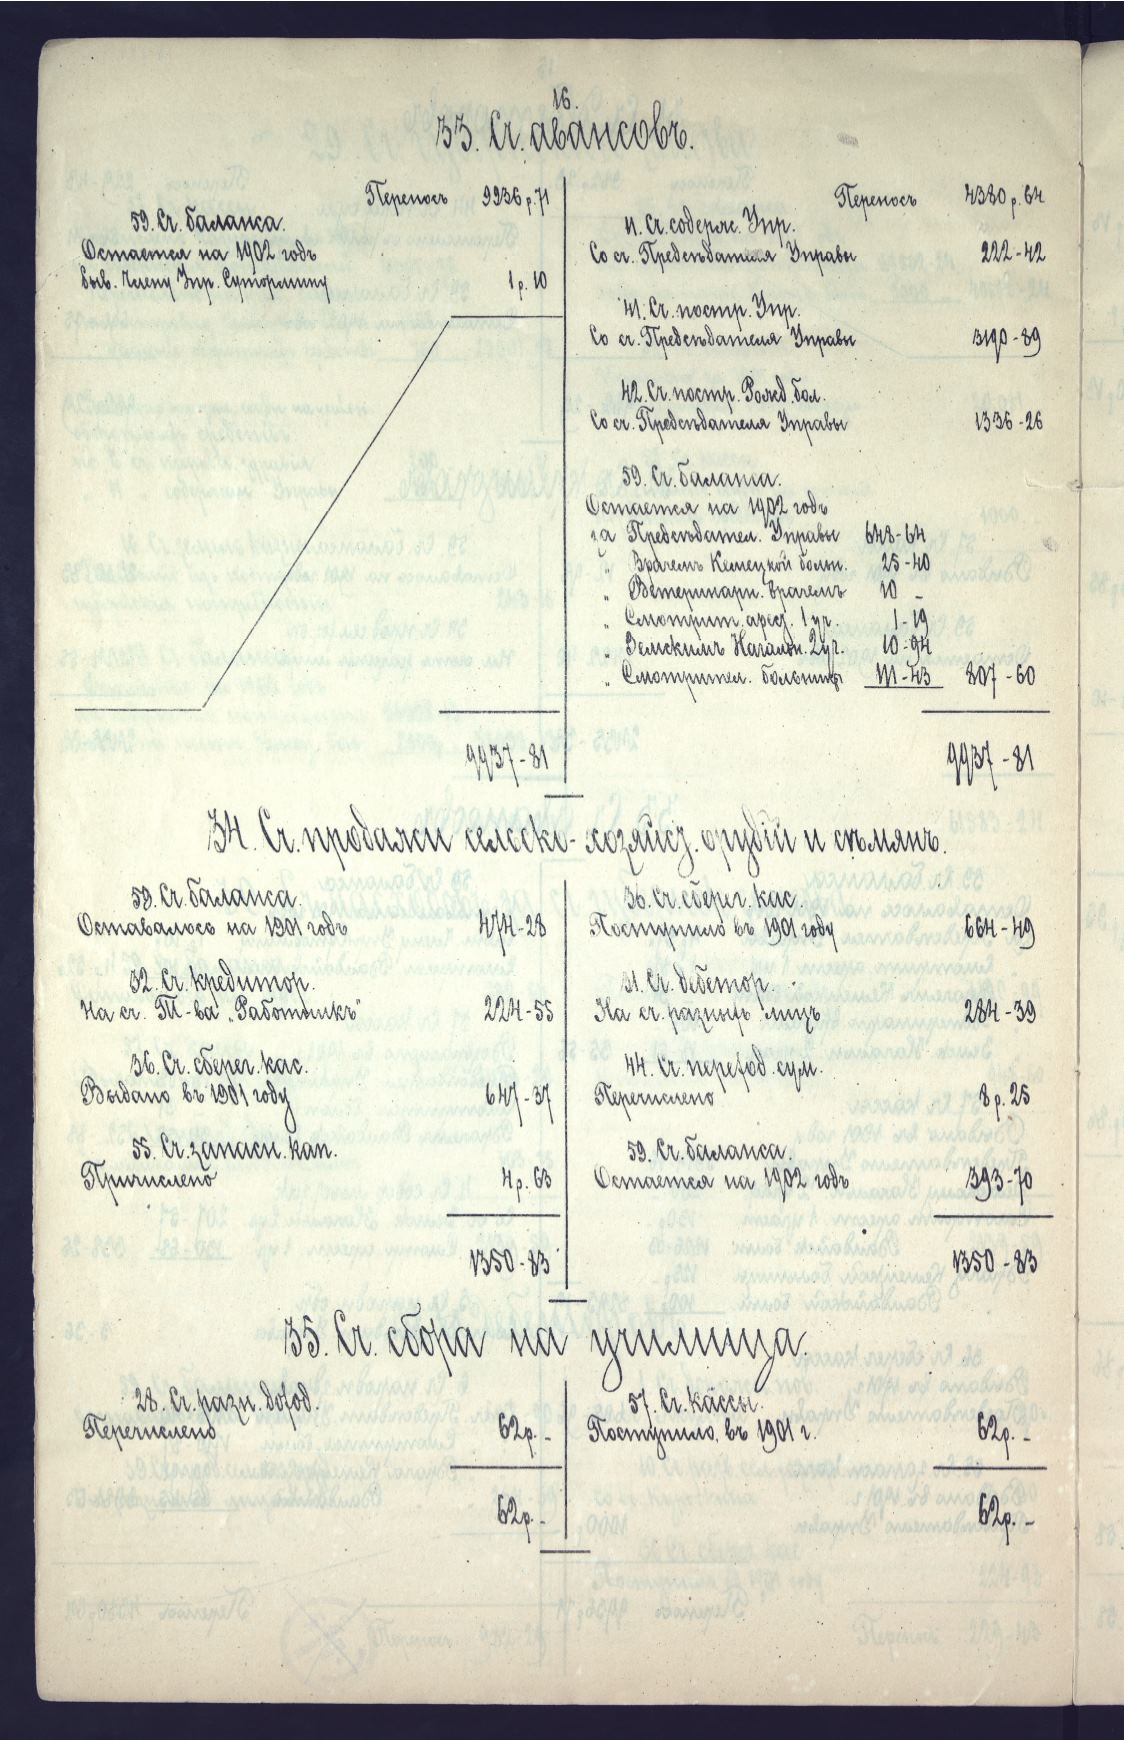 16.
33. Сч. авансовъ.
Переносъ 9936 р. 71
59. Сч. баланса.
Остается на 1902 годъ
быв. Члену Упр. Сутормину 1 р. 10
9937-81
Переносъ 4380 р. 64
11. Сч. содерж. Упр.
Со сч. Предсѣдателя Управы 222-42
41. Сч. постр. Упр.
Со сч. Предсѣдателя Управы 3190-89
42. Сч. постр. Рожд. бол.
Со сч. Предсѣдателя Управы 1336-26
59. Сч. баланса.
Остается на 1902 годъ
за Предсѣдател. Управы 648-64
„ Врачемъ Кемецкой больн. 25-40
„ Ветеринарн. врачемъ 10 -
„ Смотрит. арез. 1 уч. 1-19
„ Земскимъ Начальн. 2 уч. 10-94
„ Смотрител. больницы 111-43 807-60
9937-81
34. Сч. продажи сельско-хозяйс. орудій и сѣмянъ.
59. Сч. баланса.
Оставалось на 1901 годъ 474-28
32. Сч. кредитор.
На сч. Т-ва „Работникъ" 224-55
36. Сч. сберег. кас.
Выдано въ 1901 году 647-37
55. Сч. запасн. кап.
Причислено 4 р. 63
1350-83
36. Сч. сберег. кас.
Поступило въ 1901 году 664-49
31. Сч. дебетор.
На сч. разныхъ лицъ 284-39
44. Сч. переход. сум.
Перечислено 8 р. 25
59. Сч. баланса.
Остается на 1902 годъ 393-70
1350-83
35. Сч. сбора на училища.
28. Сч. разн. доход.
Перечислено 62 р. -
62 р. -
57. Сч. кассы.
Поступило въ 1901 г. 62 р. -
62 р. -